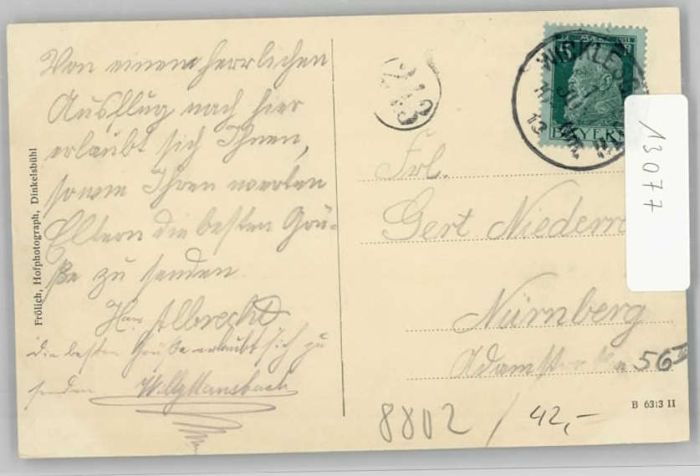 Von einem herrlichen
Ausflug nach hier
erlaubt sich Ihnen,
sowie Ihren werten
Eltern die besten Grü-
ße zu senden.
Albrecht
die besten Grüße erlaubt sich zu
senden Willy Mansbach
Frölich, Hofphotograph, Dinkelsbühl
BAYERN
13077
Frl.
Gert
Nürnberg
Adamstr 56 II
B 6313 II
8802 / 42,-